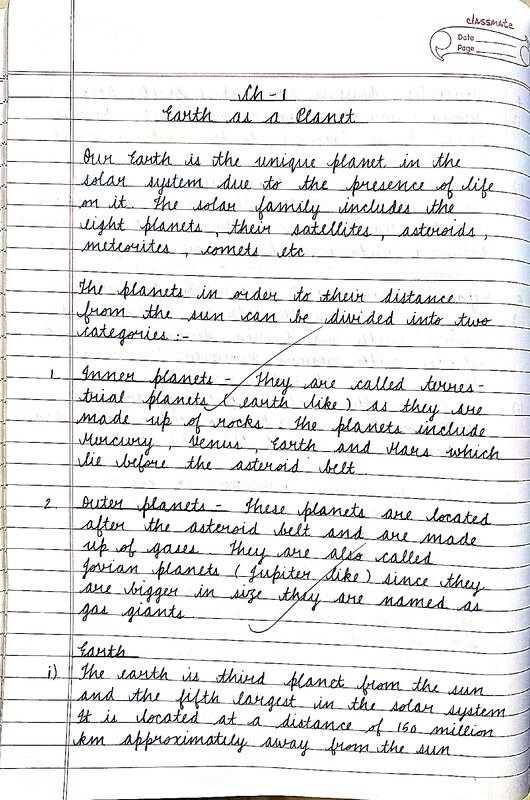 classmate
Date
Page
Ch-1
Earth as a Planet
Our Earth is the unique planet in the
solar system due to the presence of life
on it. The solar family includes the
eight planets, their satellites, asteroids,
meteorites, comets etc.
The planets in order to their distance
from the sun can be divided into two
categories :-
1. Inner planets - They are called terres-
trial planets (earth like) as they are
made up of rocks. The planets include
Mercury, Venus, Earth and Mars which
lie before the asteroid belt
2. Outer planets - These planets are located
after the asteroid belt and are made
up of gases. They are also called
Jovian planets (Jupiter like) since they
are bigger in size they are named as
gas giants
Earth
i) The earth is third planet from the sun
and the fifth largest in the solar system
It is located at a distance of 150 million
km approximately away from the sun